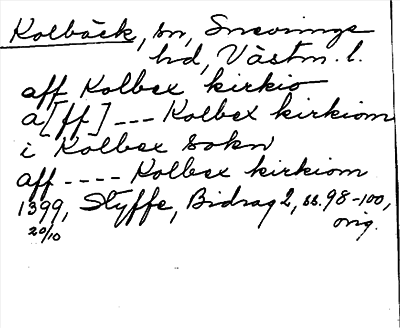 Kolbäck, sn, Snevringe
hd, Västm. l.
aff Kolbex kirkio
a[ff] --- Kolbex kirkiom
i Kolbex sokn
aff ---- Kolbex kirkiom
1399, Styffe, Bidrag 2, ss. 98-100,
20/10 orig.